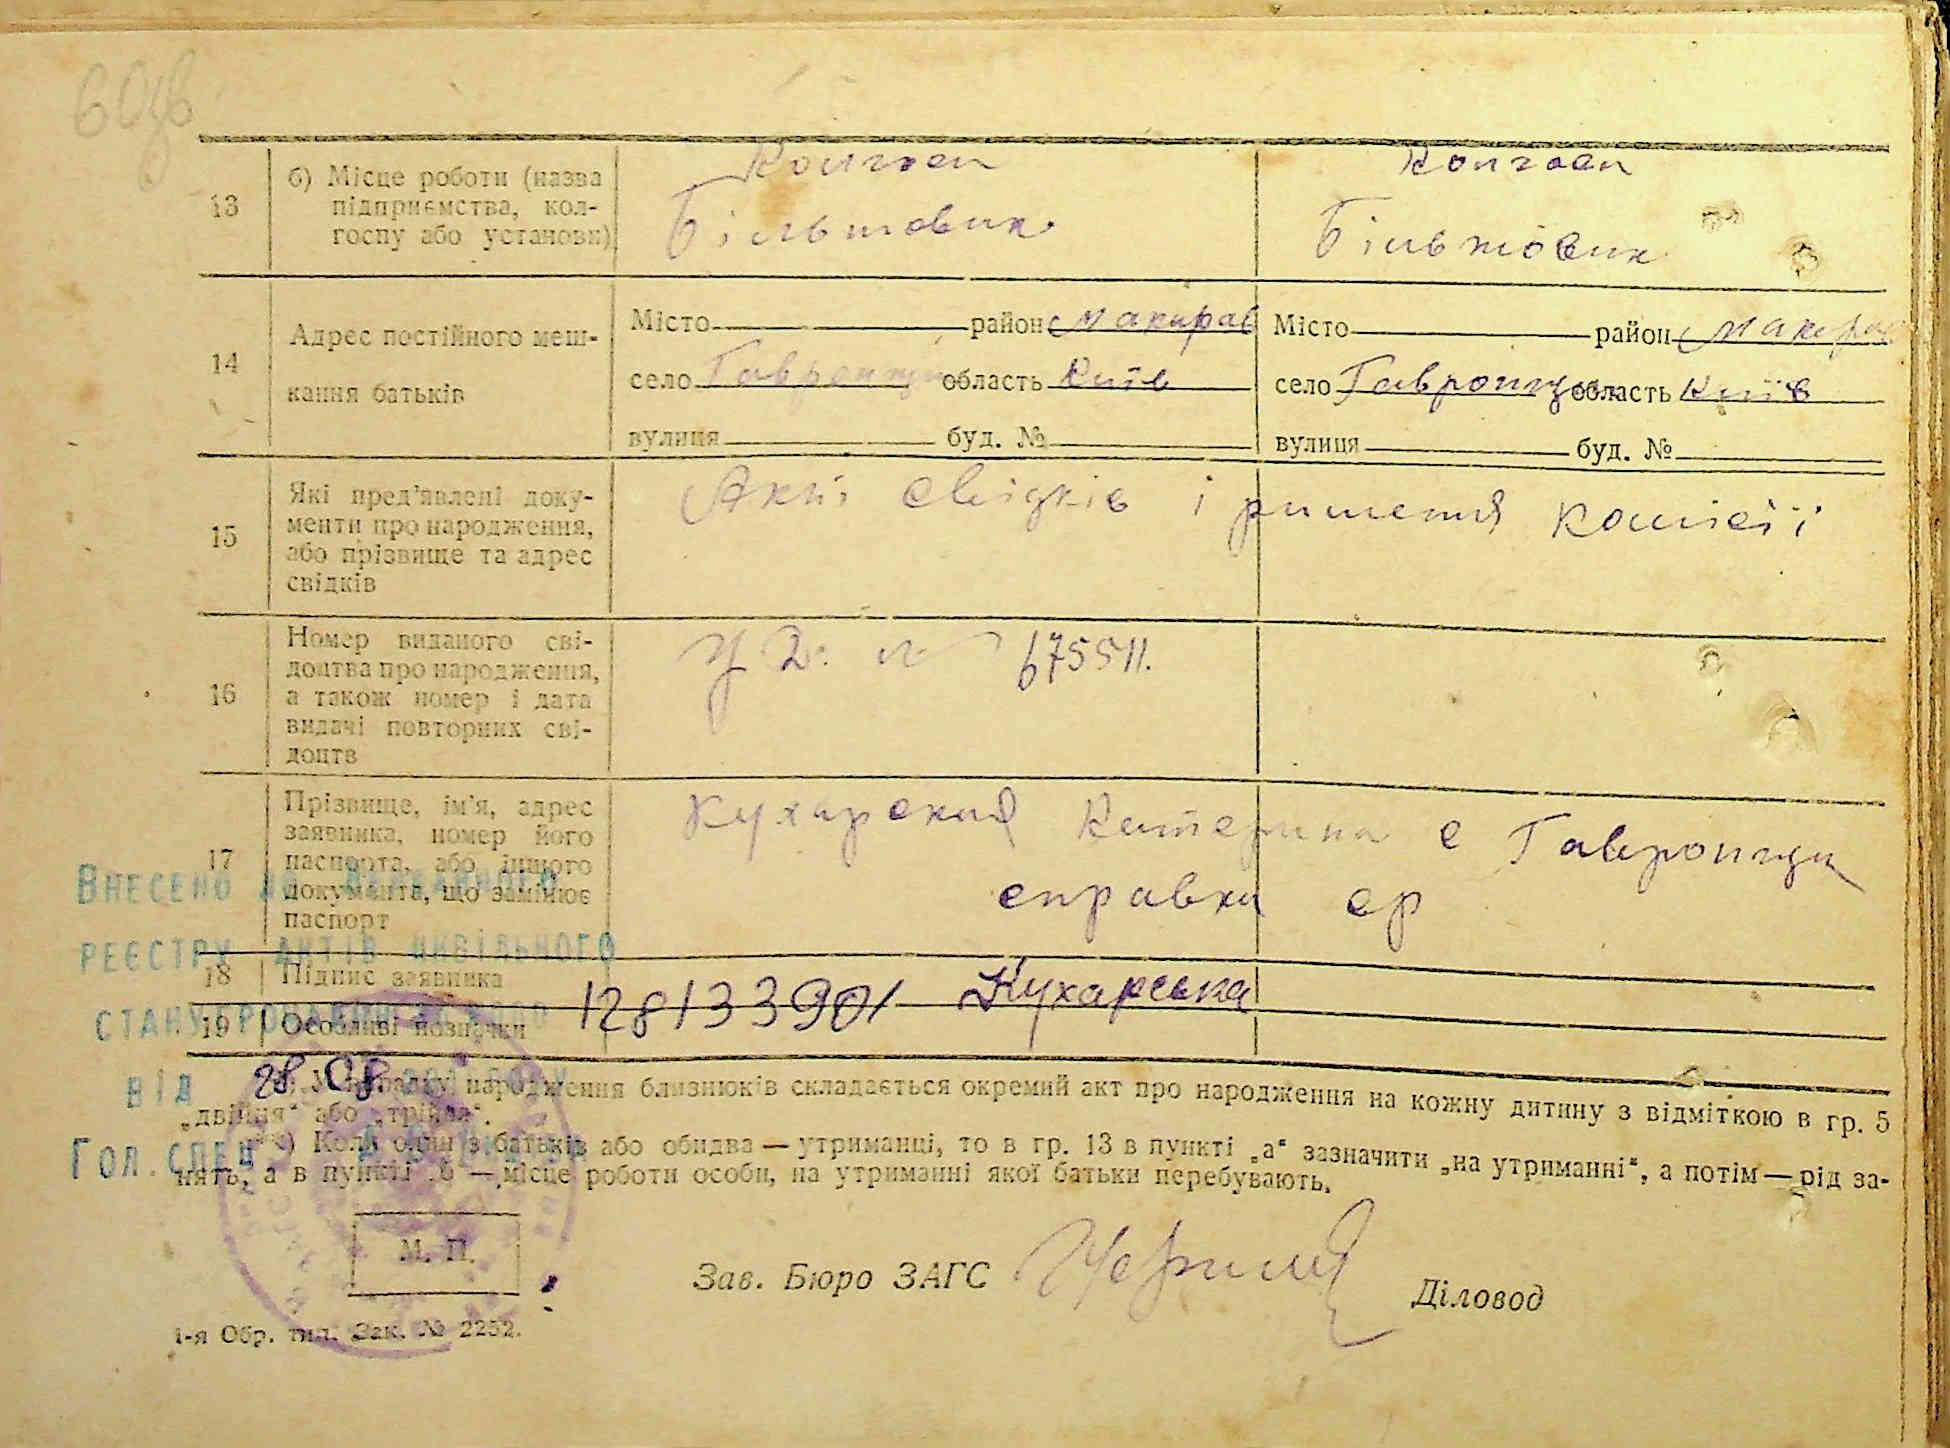 60зв
13
б) Місце роботи (назва
підприємства, кол-
госпу або установи)
Колгосп
Більшовик
Колгосп
Більшовик
14
Адрес постійного меш-
кання батьків
Місто район Макарів
село Гавронщи область Київ
вулиця буд. №
Місто район Макарів
село Гавронщи область Київ
вулиця буд. №
15
Які пред'явлені доку-
менти про народження,
або прізвище та адрес
свідків
Акт свідків і ришення комісії
16
Номер виданого сві-
доцтва про народження,
а також номер і дата
видачі повторних сві-
доцтв
№ 675511.
17
Прізвище, ім'я, адрес
заявника, номер його
паспорта, або іншого
документа, що замінює
паспорт
Кухарская Катерина с Гавронщи
справка ср
18
Підпис заявника
Кухарська
19
Особливі позначки
12813390/
Внесено до Державного
реєстру актів цивільного
стану громадян за №
від 28.08
Гол. спец
*) У випадку народження близнюків складається окремий акт про народження на кожну дитину з відміткою в гр. 5
„двійня“ або „трійня“.
**) Коли один з батьків або обидва — утриманці, то в гр. 13 в пункті „а“ зазначити „на утриманні“, а потім — рід за-
нять, а в пункті „б“ — місце роботи особи, на утриманні якої батьки перебувають.
М. П.
Зав. Бюро ЗАГС
Діловод
1-я Обр. тип. Зак. № 2252.